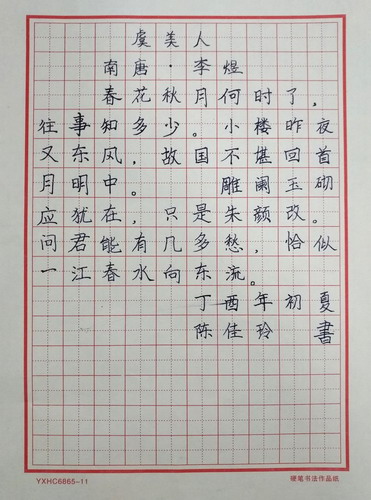 虞美人
南唐·李煜
春花秋月何时了，
往事知多少。小楼昨夜
又东风，故国不堪回首
月明中。雕阑玉砌
应犹在，只是朱颜改。
问君能有几多愁，恰似
一江春水向东流。
丁酉年初夏
陈佳玲 書
YXHC6865-11 硬笔书法作品纸